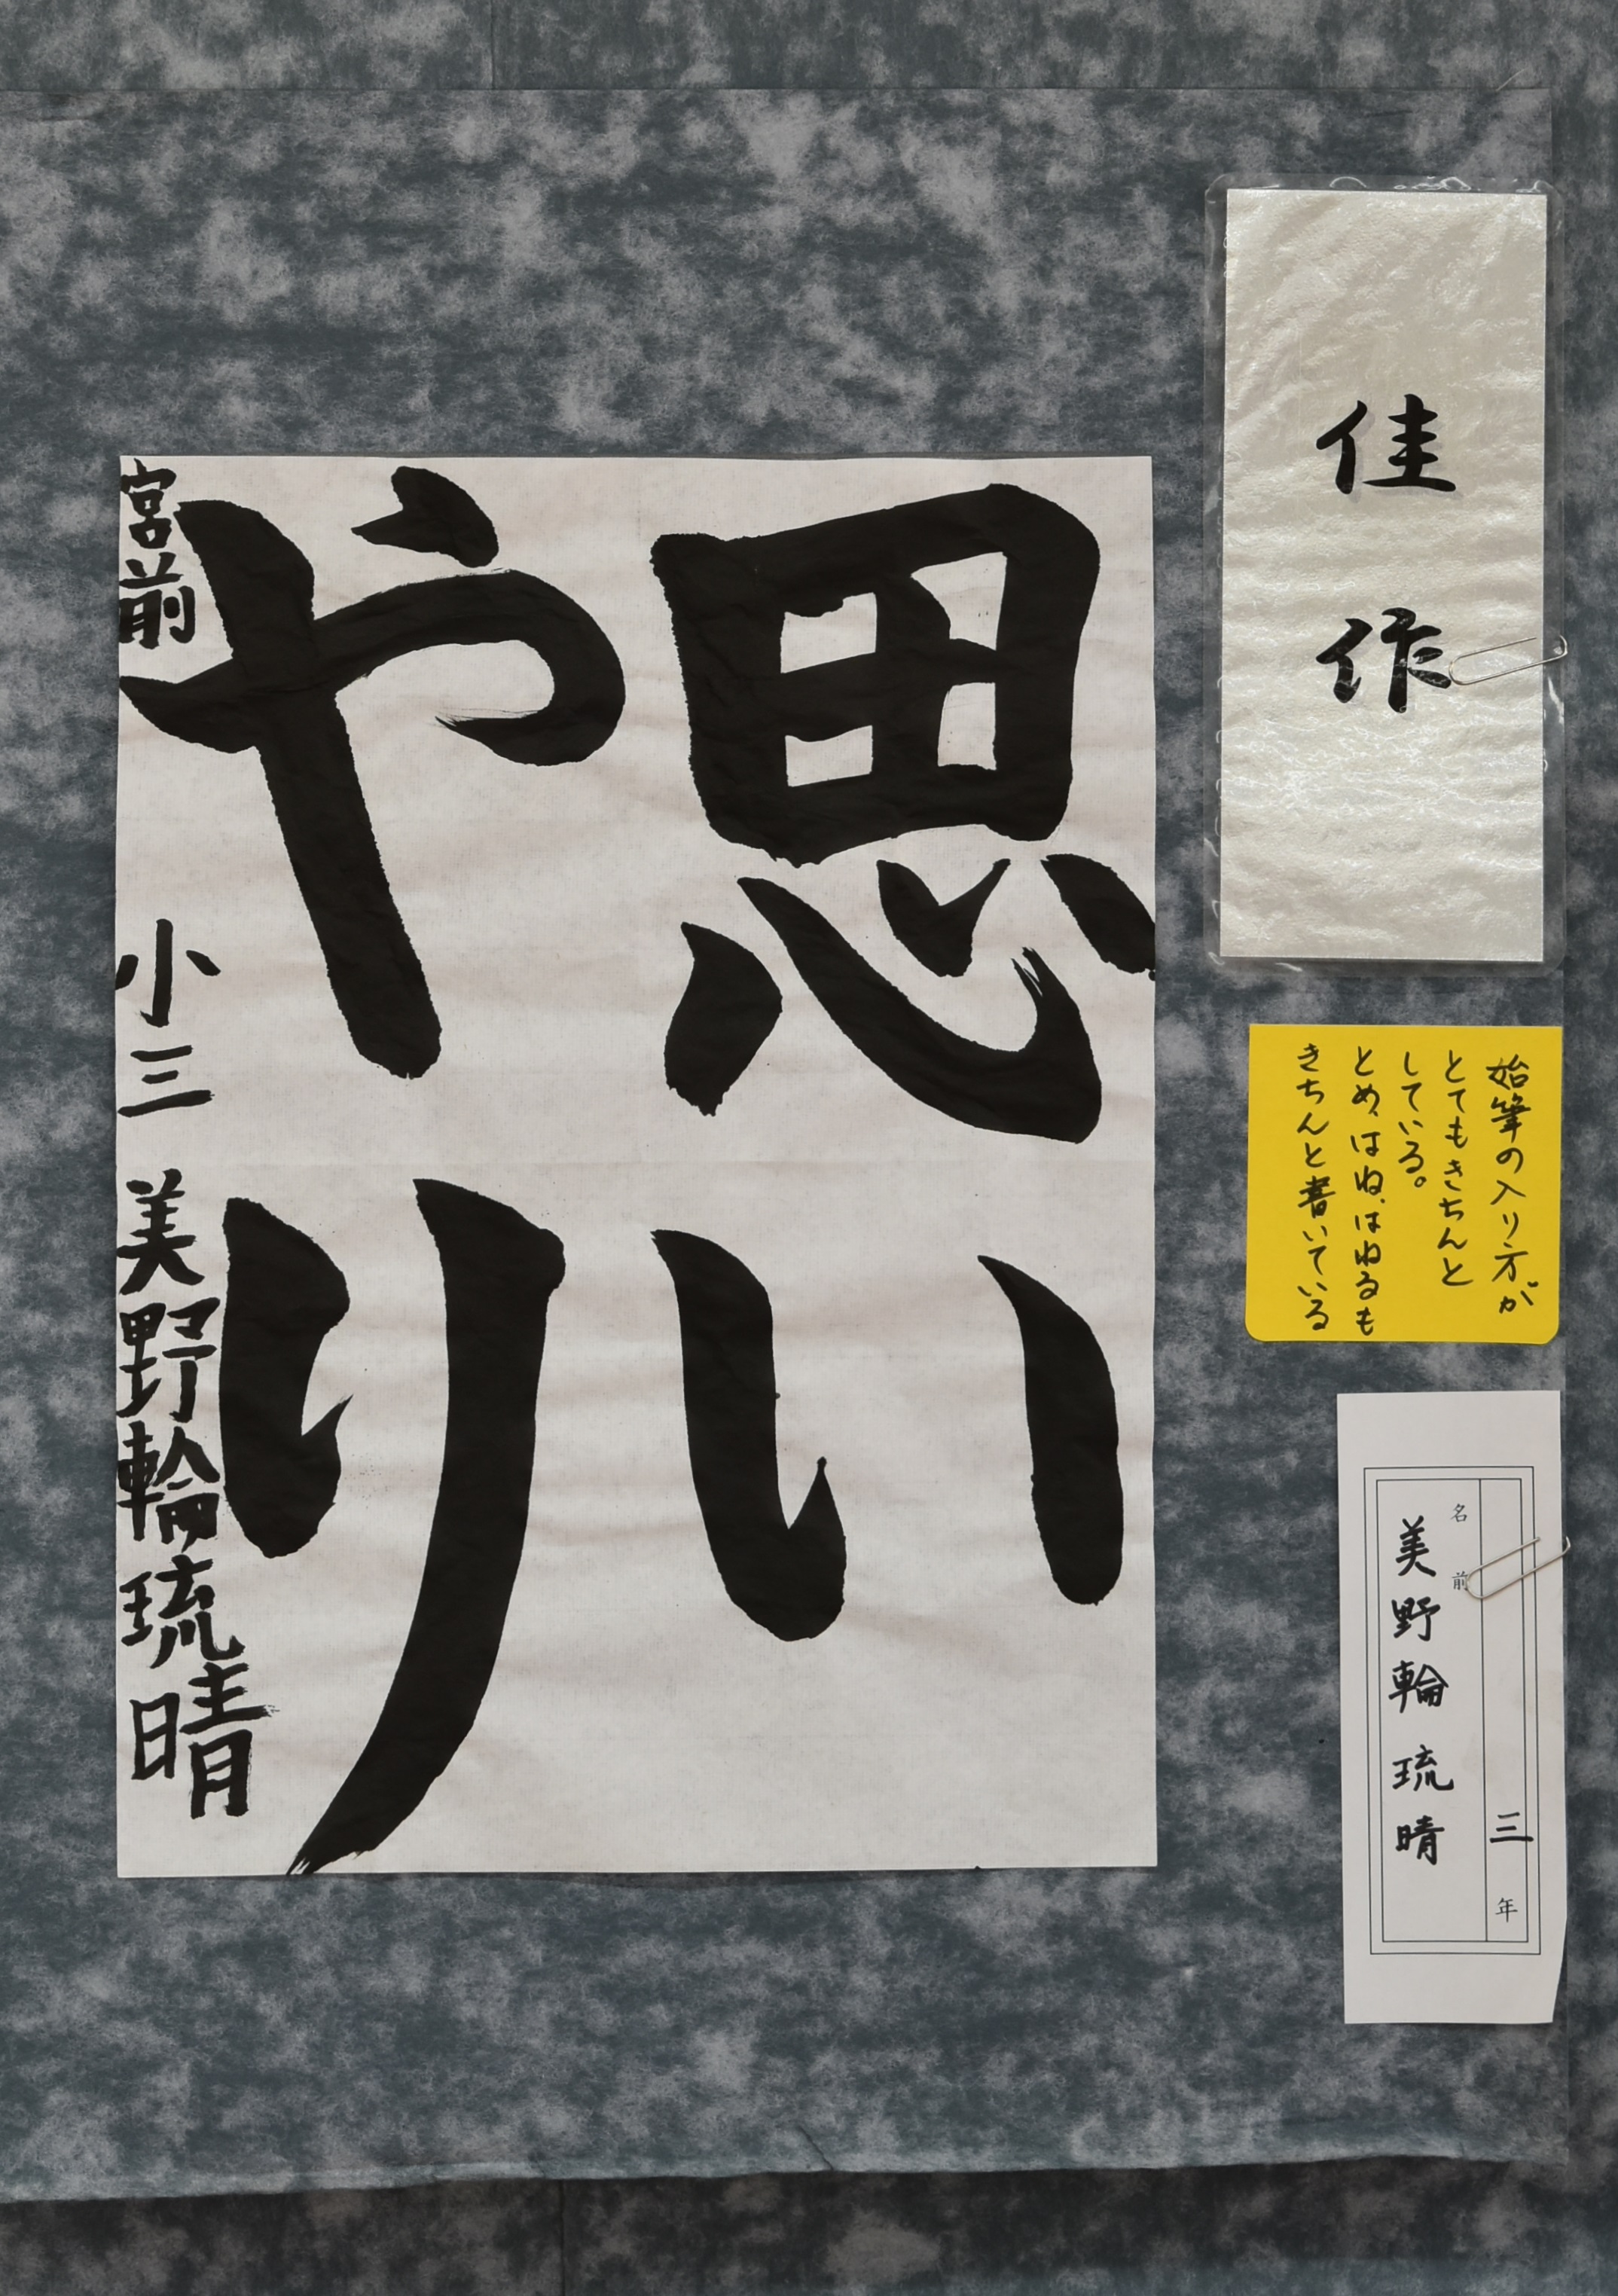 思い
やり
宮前 小三 美野輪琉晴
佳作
始筆の入り方が
とてもきちんと
している。
とめ、はね、はねるも
きちんと書いている
三年
名前
美野輪琉晴